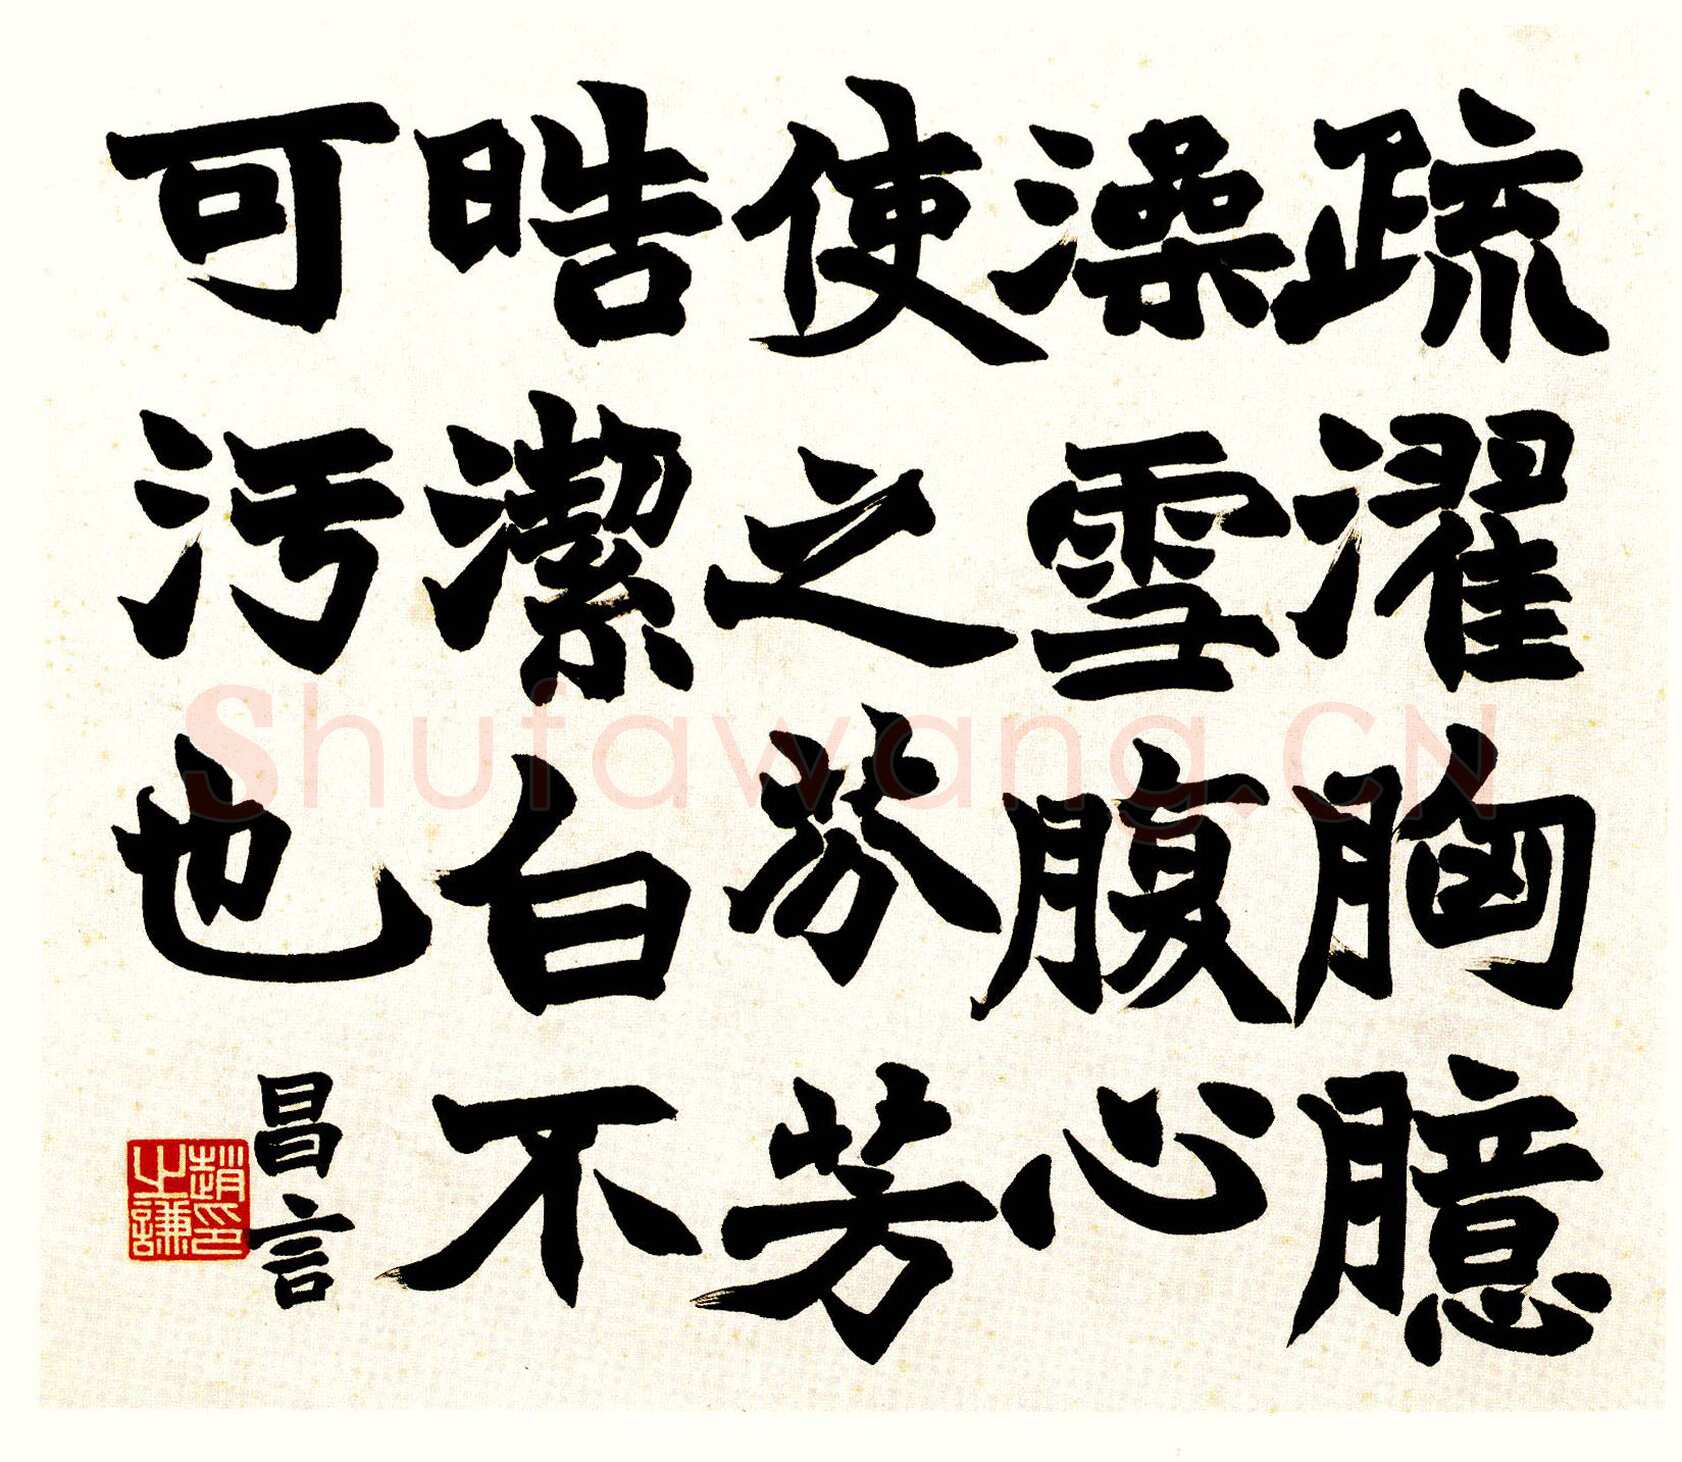 疏濯胸臆
澡雪腹心
使之芬芳
晧潔白不
可汚也
昌言
趙之謙印
Shufawang.CN